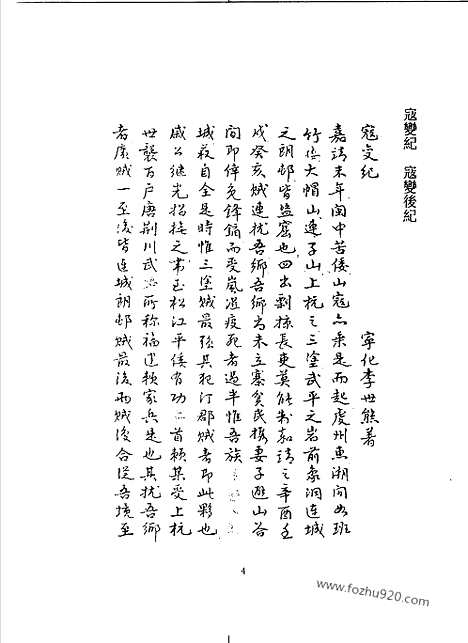 寇變紀 寇變後紀
寇变纪
寧化李世熊著
嘉靖末年闽中苦倭山寇亦乘是而起虔州
潮间如班
竹楼大帽山连子山上杭之三塗武平之岩前象洞连城
之朗邨皆盗窟也四出剽掠长吏莫能制嘉靖之辛酉壬
戌癸亥贼连扰吾乡吾乡尚未立寨贫民挈妻子遯山谷
间即倖免锋镝而受岚湿疫死者过半惟吾族
城获自全是时惟三塗贼最强其犯汀郡贼者即此夥也
戚公继光招接之常至松江平倭有功二首赖某受上杭
世袭百户唐荆川武
所称福建赖家兵是也其扰吾乡
者广贼一至后皆连城朗邨贼最后两贼复合从吾境至
4
www.fozhu920.com